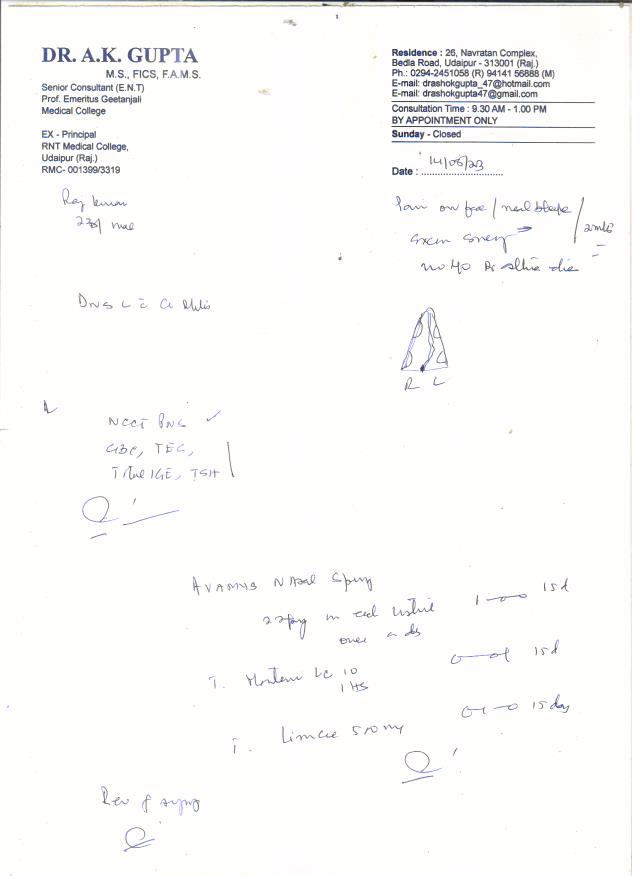 DR. A.K. GUPTA
M.S., FICS, F.A.M.S.
Senior Consultant (E.N.T)
Prof. Emeritus Geetanjali
Medical College
EX - Principal
RNT Medical College,
Udaipur (Raj.)
RMC- 001399/3319
Residence : 26, Navratan Complex,
Bedla Road, Udaipur - 313001 (Raj.)
Ph.: 0294-2451058 (R) 94141 56888 (M)
E-mail: drashokgupta_47@hotmail.com
E-mail: drashokgupta47@gmail.com
Consultation Time : 9.30 AM - 1.00 PM
BY APPOINTMENT ONLY
Sunday - Closed
Date : 14/06/23
Raj kumar
Pain on face /
no H/O
DNS L c
R L
NCCT PNS
CBC, TEC,
IGE, TSH
AVAMYS Nasal Spray
in each nostril
once a day
1-0-0 15d
T. Montem LC 10
1 HS
15d
T. Limcee 500 mg
15 days
Rev